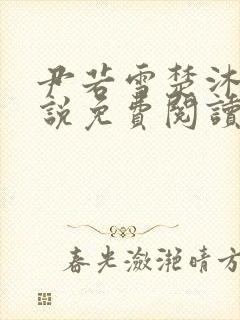 尹若雪楚沐
說免費閱讀
春光瀲灩晴方